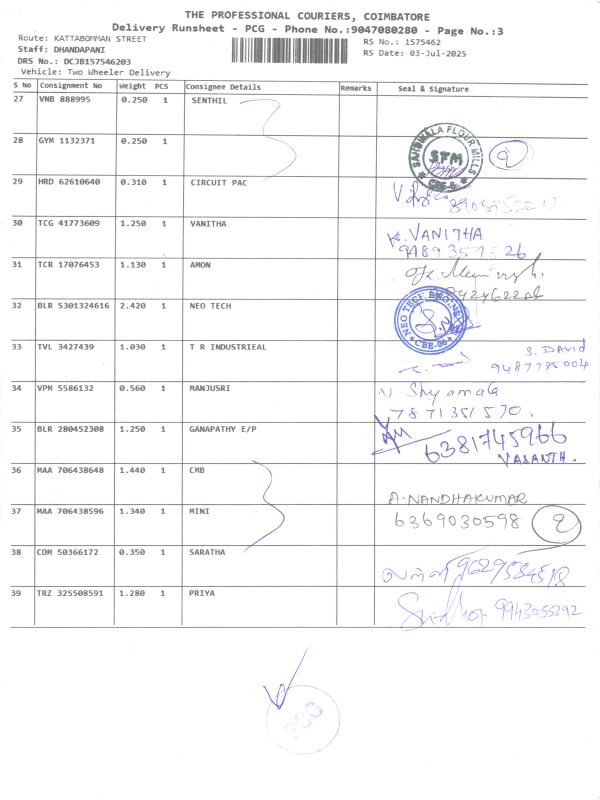 THE PROFESSIONAL COURIERS, COIMBATORE
Delivery Runsheet - PCG - Phone No.:9047080280 - Page No.:3
Route: KATTABOMMAN STREET
RS No.: 1575462
Staff: DHANDAPANI
RS Date: 03-Jul-2025
DRS No.: DCJB157546203
Vehicle: Two Wheeler Delivery
S No Consignment No Weight PCS Consignee Details Remarks Seal & Signature
27 VNB 888995 0.250 1 SENTHIL
28 GYM 1132371 0.250 1
SAHUWALA FLOUR MILLS
SFM
CBE-6
2
29 HRD 62610640 0.310 1 CIRCUIT PAC
30 TCG 41773609 1.250 1 VANITHA
K. VANITHA
31 TCR 17076453 1.130 1 AMON
32 BLR 5301324616 2.420 1 NEO TECH
CBE-06
33 TVL 3427439 1.030 1 T R INDUSTRIEAL
S. DAVID
9487785004
34 VPM 5586132 0.560 1 MANJUSRI
Shyamala
7871351570.
35 BLR 280452308 1.250 1 GANAPATHY E/P
6381745966
VASANTH.
36 MAA 706438648 1.440 1 CMB
A. NANDHAKUMAR
37 MAA 706438596 1.340 1 MINI
6369030598 2
38 CDM 50366172 0.350 1 SARATHA
39 TRZ 325508591 1.280 1 PRIYA
9943055292
PCG